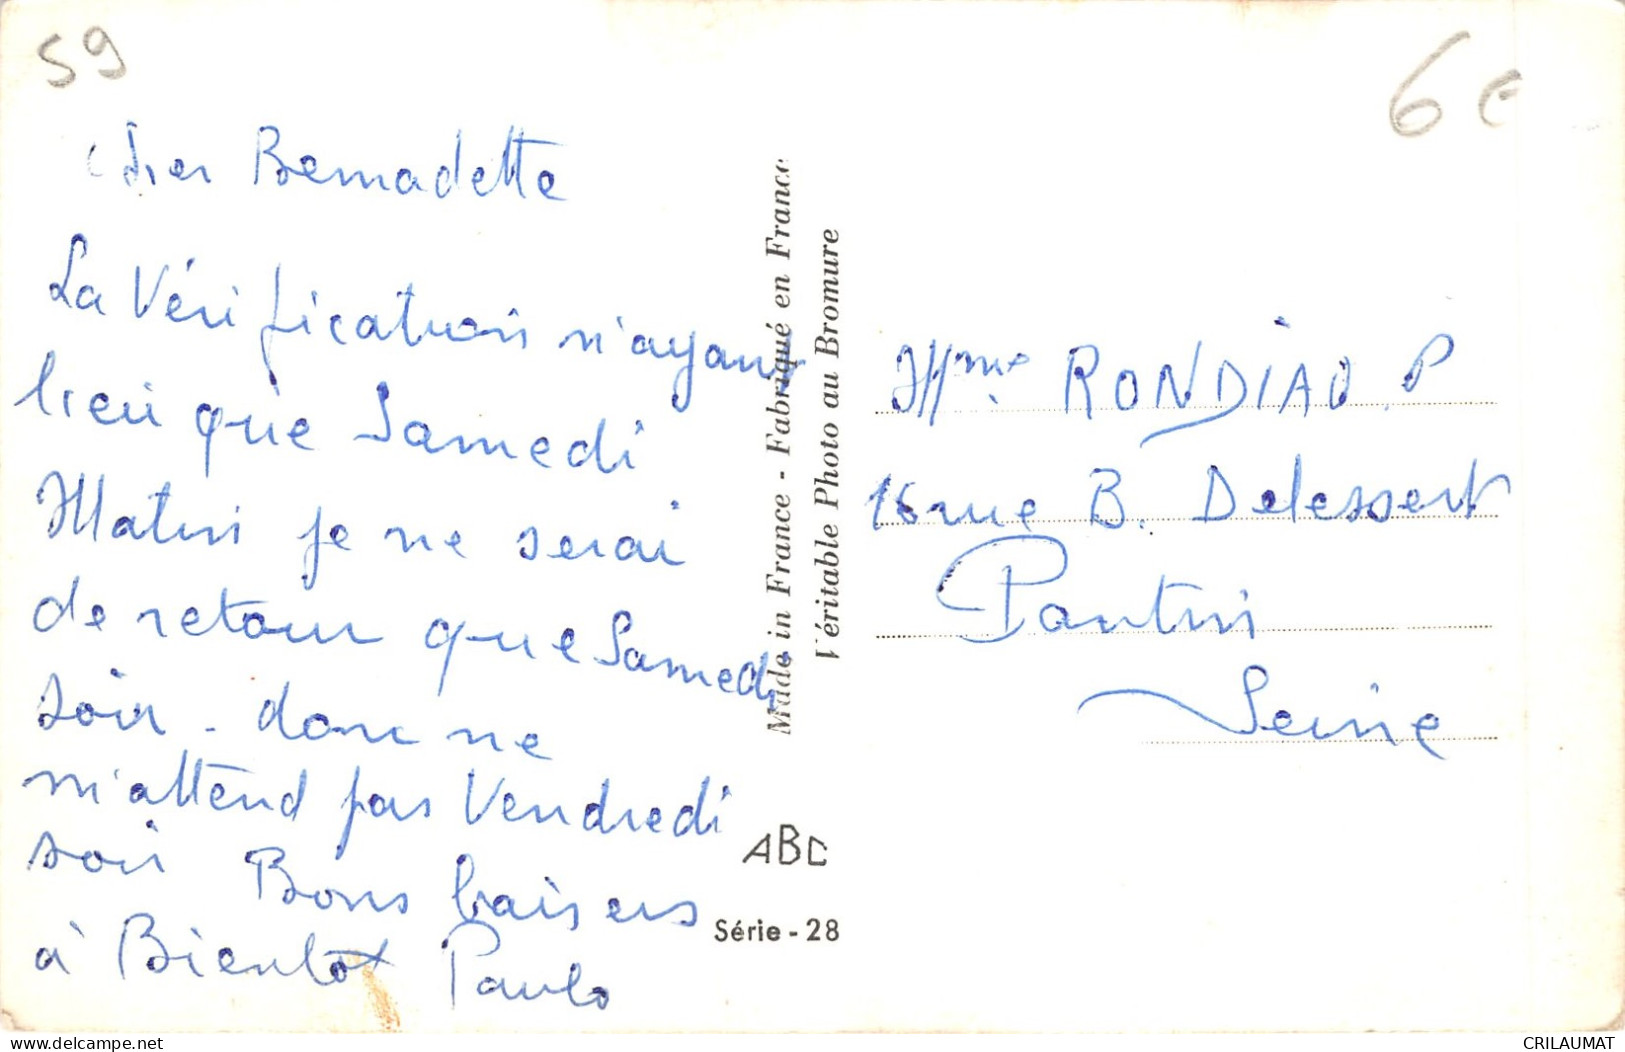 59
6€
Cher Bernadette
La Vérification n'ayant
lieu que Samedi
Matin je ne serai
de retour que Samedi
soir - donc ne
m'attend pas Vendredi
soir Bons baisers
à Bientôt Paulo
Made in France - Fabriqué en France
Véritable Photo au Bromure
ABC
Série - 28
Mme RONDIAU. P
16 rue B. Delessert
Pantin
Seine
delcampe.net
CRILAUMAT